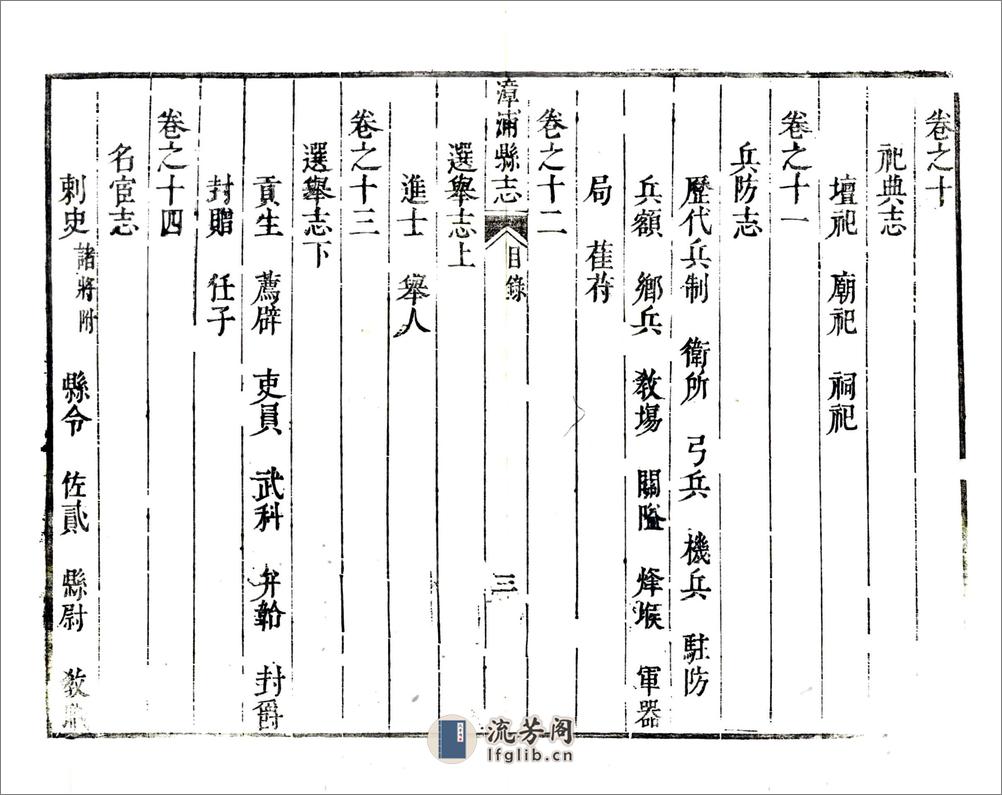 卷之十
祀典志
壇祀 廟祀 祠祀
卷之十一
兵防志
歷代兵制 衛所 弓兵 機兵 駐防
兵額 鄉兵 敎塲 關隘 烽堠 軍器
局 萑苻
卷之十二
漳浦縣志 目錄 三
選舉志上
進士 舉人
卷之十三
選舉志下
貢生 薦辟 吏員 武科 弁幹 封爵
封贈 任子
卷之十四
名宦志
刺史 諸將附 縣令 佐貳 縣尉 敎職
流芳阁
lfglib.cn